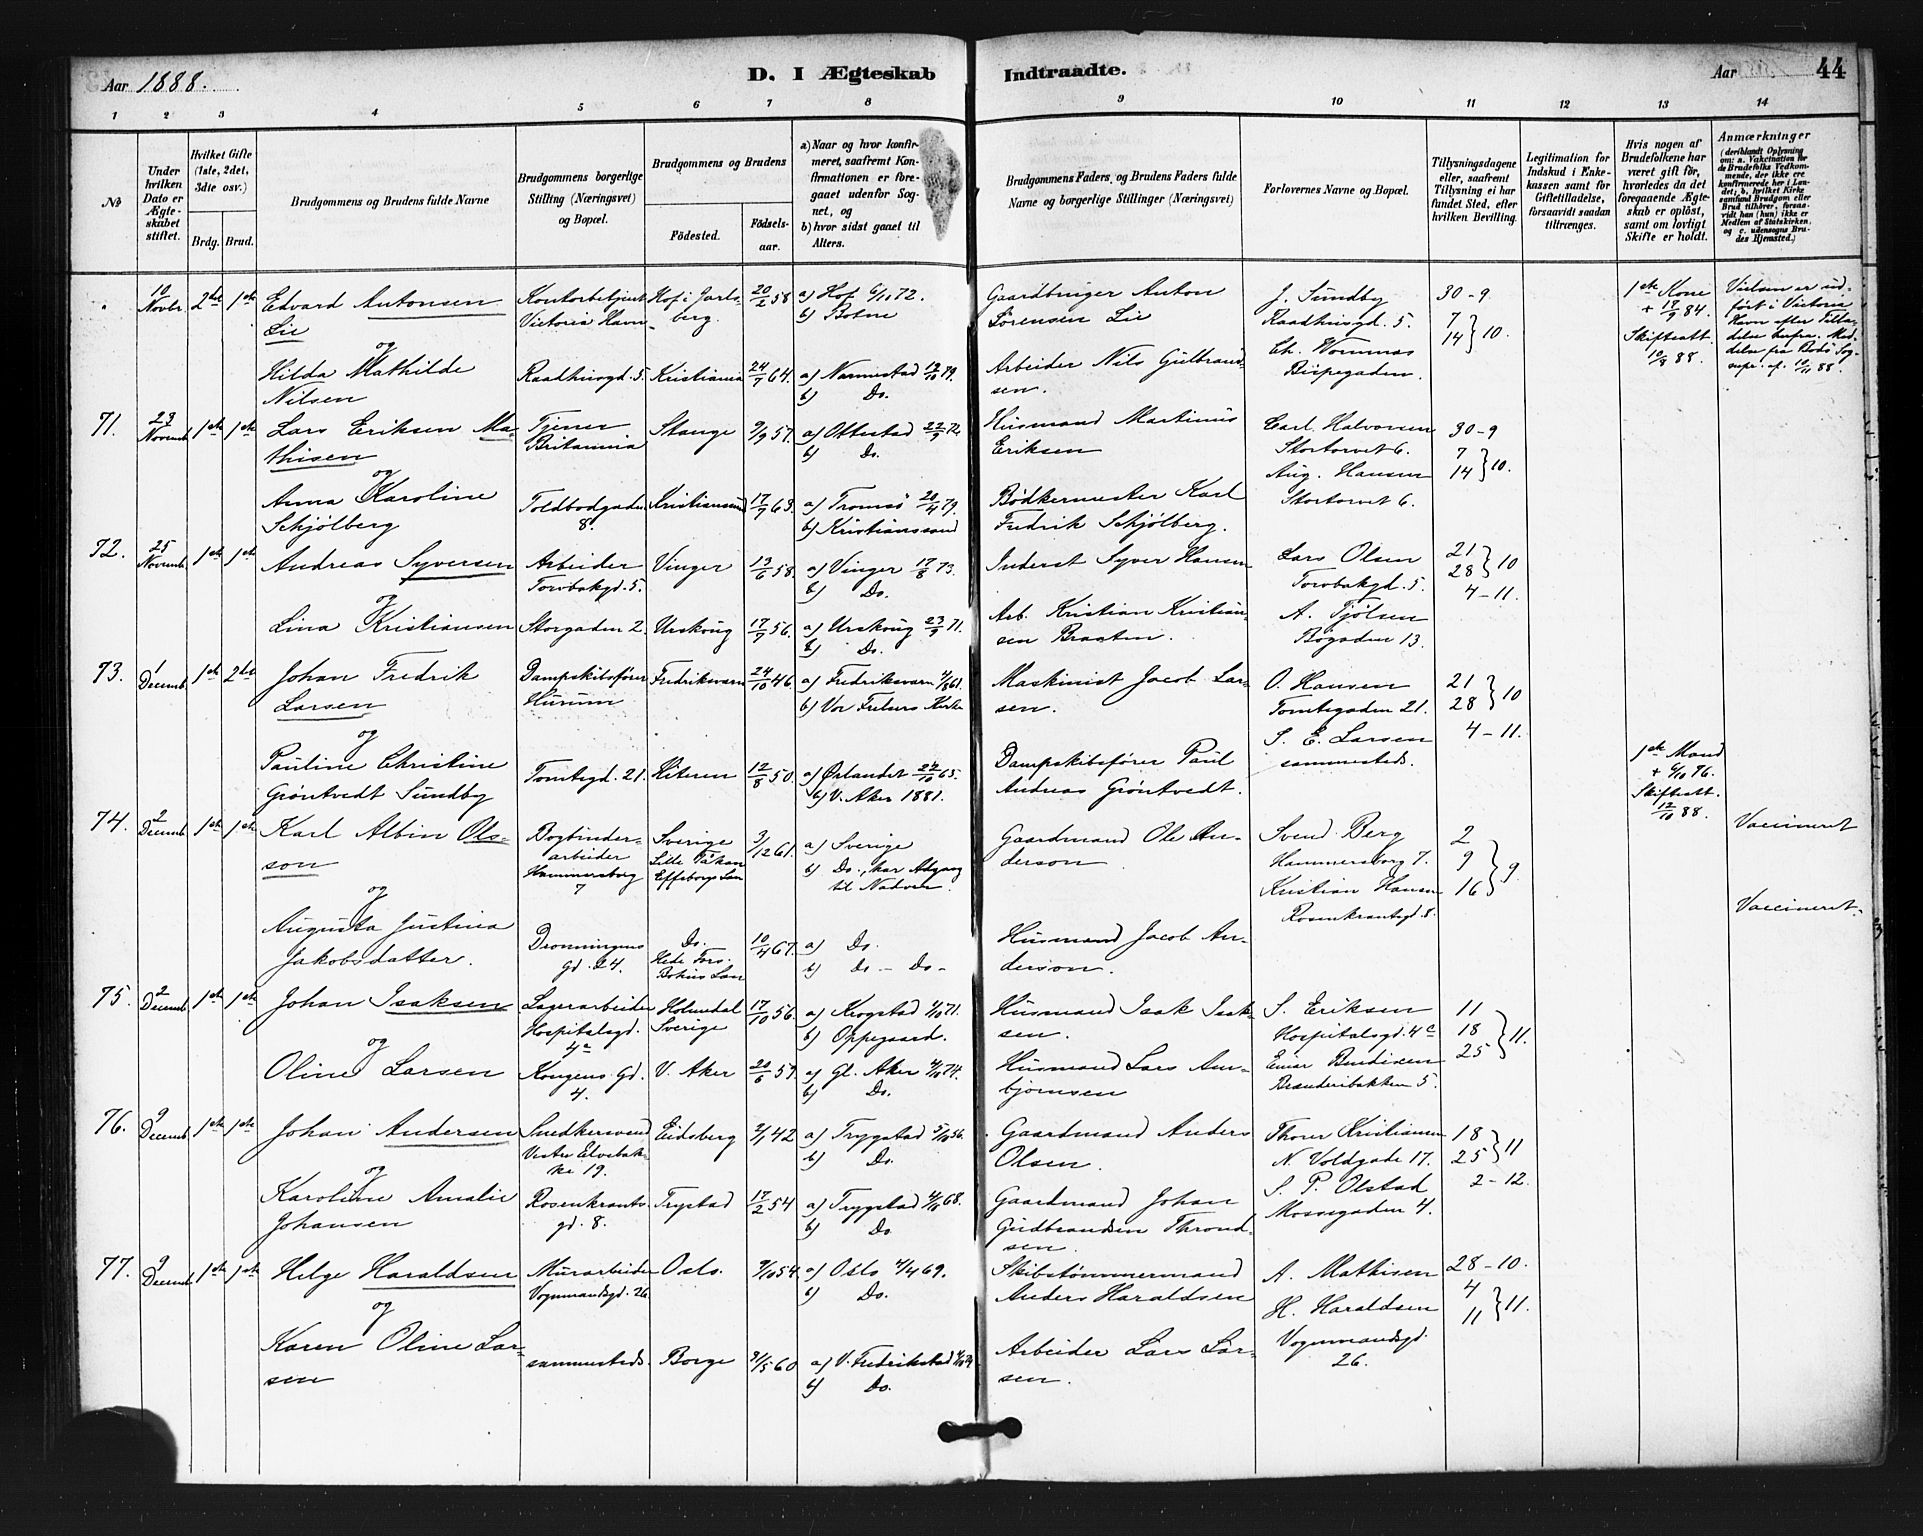 Aar 1888.
D. I Ægteskab Indtraadte.
Aar 44
1 2 3 4 5 6 7 8 9 10 11 12 13 14
№
Under hvilken Dato er Ægteskabet stiftet.
Hvilket Gifte (1ste, 2det, 3die osv.)
Brdg. Brud.
Brudgommens og Brudens fulde Navne
Brudgommens borgerlige Stilling (Næringsvei) og Bopæl.
Brudgommens og Brudens
Fødested. Fødselsaar.
a) Naar og hvor konfirmeret, saafremt Konfirmationen er foregaaet udenfor Sognet, og
b) hvor sidst gaaet til Alters.
Brudgommens Faders og Brudens Faders fulde Navne og borgerlige Stillinger (Næringsvei)
Forlovernes Navne og Bopæl.
Tillysningsdagene eller, saafremt Tillysning ei har fundet Sted, efter hvilken Bevilling.
Legitimation for Indskud i Enkekassen samt for Giftetilladelse, forsaavidt saadan tiltrænges.
Hvis nogen af Brudefolkene har været gift før, hvorledes da det foregaaende Ægteskab er opløst, samt om lovligt Skifte er holdt.
Anmærkninger (deriblandt Oplysning om: a. Vakcination for de Brudefolks Vedkommende, der ikke ere konfirmerede her i Landet; b. hvilket Kirkesamfund Brudgom eller Brud tilhører, forsaavidt han (hun) ikke er Medlem af Statskirken, og c. udensogns Brudes Hjemsted.)
10 Novbr. 2det 1ste Edvard Antonsen Lie
Kontorbetjent Victoria Havn
Hof i Jarlsberg. 20/2 58
a) Hof 6/10 72.
b) Botne
Gaardbruger Anton Sørensen Lie
J. Sundby Raadhusgd. 5.
Ch. Wommas Bispegaden.
30-9
7
14 } 10.
1ste Kone + 17/9 84. Skifteatt. 10/8 88
Vielsen er udført i Victoria Havn efter Tilladelse herfra. Meddelse fra Bodø Sognepr. af 12/11 88.
og
Hilda Mathilde Nilsen
Raadhusgd. 5. Kristiania 24/7 64.
a) Nannestad 12/10 79.
b) Do.
Arbeider Nils Gulbrandsen.
71. 23 Novemb. 1ste 1ste Lars Eriksen Mathisen
Tjener Britannia
Stange 9/9 57.
a) Ottestad 22/9 72
b) Do.
Husmand Martinius Eriksen
Carl Halvorsen Stortorvet 6.
Aug. Hansen Stortorvet 6.
30-9
7
14 } 10.
og
Anna Karoline Schjølberg
Toldbodgaden 8.
Kristianssund 17/7 63.
a) Tromsø 20/4 79.
b) Kristianssand
Bødkermester Karl Fredrik Schjølberg.
72. 25 Novemb. 1ste 1ste Andreas Syversen
Arbeider Torvbakgd. 5.
Vinger 13/6 58.
a) Vinger 17/8 73.
b) Do.
Inderst Syver Hansen
Lars Olsen Torvbakgd. 5.
A. Tjølsen Bøgaden 13.
21
28 } 10
4-11.
og
Lina Kristiansen
Storgaden 2. Urskoug 17/7 56.
a) Urskoug 23/9 71.
b) Do.
Arb. Kristian Kristiansen Braaten.
73. 1 Decemb. 1ste 2det Johan Fredrik Larsen
Dampskibsfører Hurum
Fredriksværn 24/10 46.
a) Fredriksværn /8 61.
b) Vor Frelsers Kirke
Maskinist Jacob Larsen.
O. Hansen Tomtegaden 21.
S. E. Larsen sammesteds.
21
28 } 10
4-11.
og
Pauline Christine Grøntvedt Sundby
Tomtegd. 21. Hiteren 12/8 50.
a) Ørlandet 22/10 65.
b) V. Aker 1881.
Dampskibsfører Paul Andreas Grøntvedt.
1ste Mand + 6/10 76. Skifteatt. 12/10 88.
74. 2 Decemb. 1ste 1ste Karl Albin Olsson
Bogbinderarbeider Hammersborg 7
Sverige Lille Effsborgs Län 3/12 61.
a) Sverige
b) Do., har Adgang til Nadver.
Gaardmand Ole Anderson
Svend Berg Hammersborg 7.
Kristian Hansen Rosenkrantsgd. 8.
2
9
16 } 9.
Vaccineret
og
Augusta Justina Jakobsdatter.
Dronningens gd. 24.
Do. Hede Fors. Bohus Län 10/4 67.
a) Do.
b) Do - Do-
Husmand Jacob Anderson.
Vaccineret.
75. 2 Decemb. 1ste 1ste Johan Isaksen
Lagerarbeider Hospitalsgd. 4c
Holmedal Sverige 17/10 56.
a) Krogstad 1/10 71.
b) Oppegaard.
Husmand Isak Isaksen.
S. Eriksen Hospitalsgd. 4c
Einar Bendixen Branderibakken 5.
11
18
25 } 11.
og
Oline Larsen
Kongens Gd. 4.
V. Aker 20/6 57.
a) Gl. Aker 4/10 74.
b) Do.
Husmand Lars Arnbjørnsen
76. 9 Decemb. 1ste 1ste Johan Andersen
Snedkersvend Vestre Elvebakke 19.
Eidsberg 2/1 42
a) Trygstad 5/10 56.
b) Do.
Gaardmand Anders Olsen.
Thorer Kristiansen N. Voldgade 17.
S. P. Olstad Mossegaden 4.
18
25 } 11
2-12.
og
Karoline Amalie Johansen
Rosenkrantsgd. 8.
Trystad 17/2 54
a) Trygstad 4/10 68.
b) Do
Gaardmand Johan Gudbrandsen Throndsen.
77. 9 Decemb. 1ste 1ste Helge Haraldsen
Murarbeider Vognmandsgd. 26.
Oslo. 7/10 54.
a) Oslo 4/4 69.
b) Do.
Skibstømmermand Anders Haraldsen
A. Mathisen
H. Haraldsen Vognmandsgd. 26.
28-10.
4
11 } 11.
og
Karen Oline Larsen
sammesteds. Borge 31/5 60
a) V. Fredrikstad
b) Do.
Arbeider Lars Larsen.